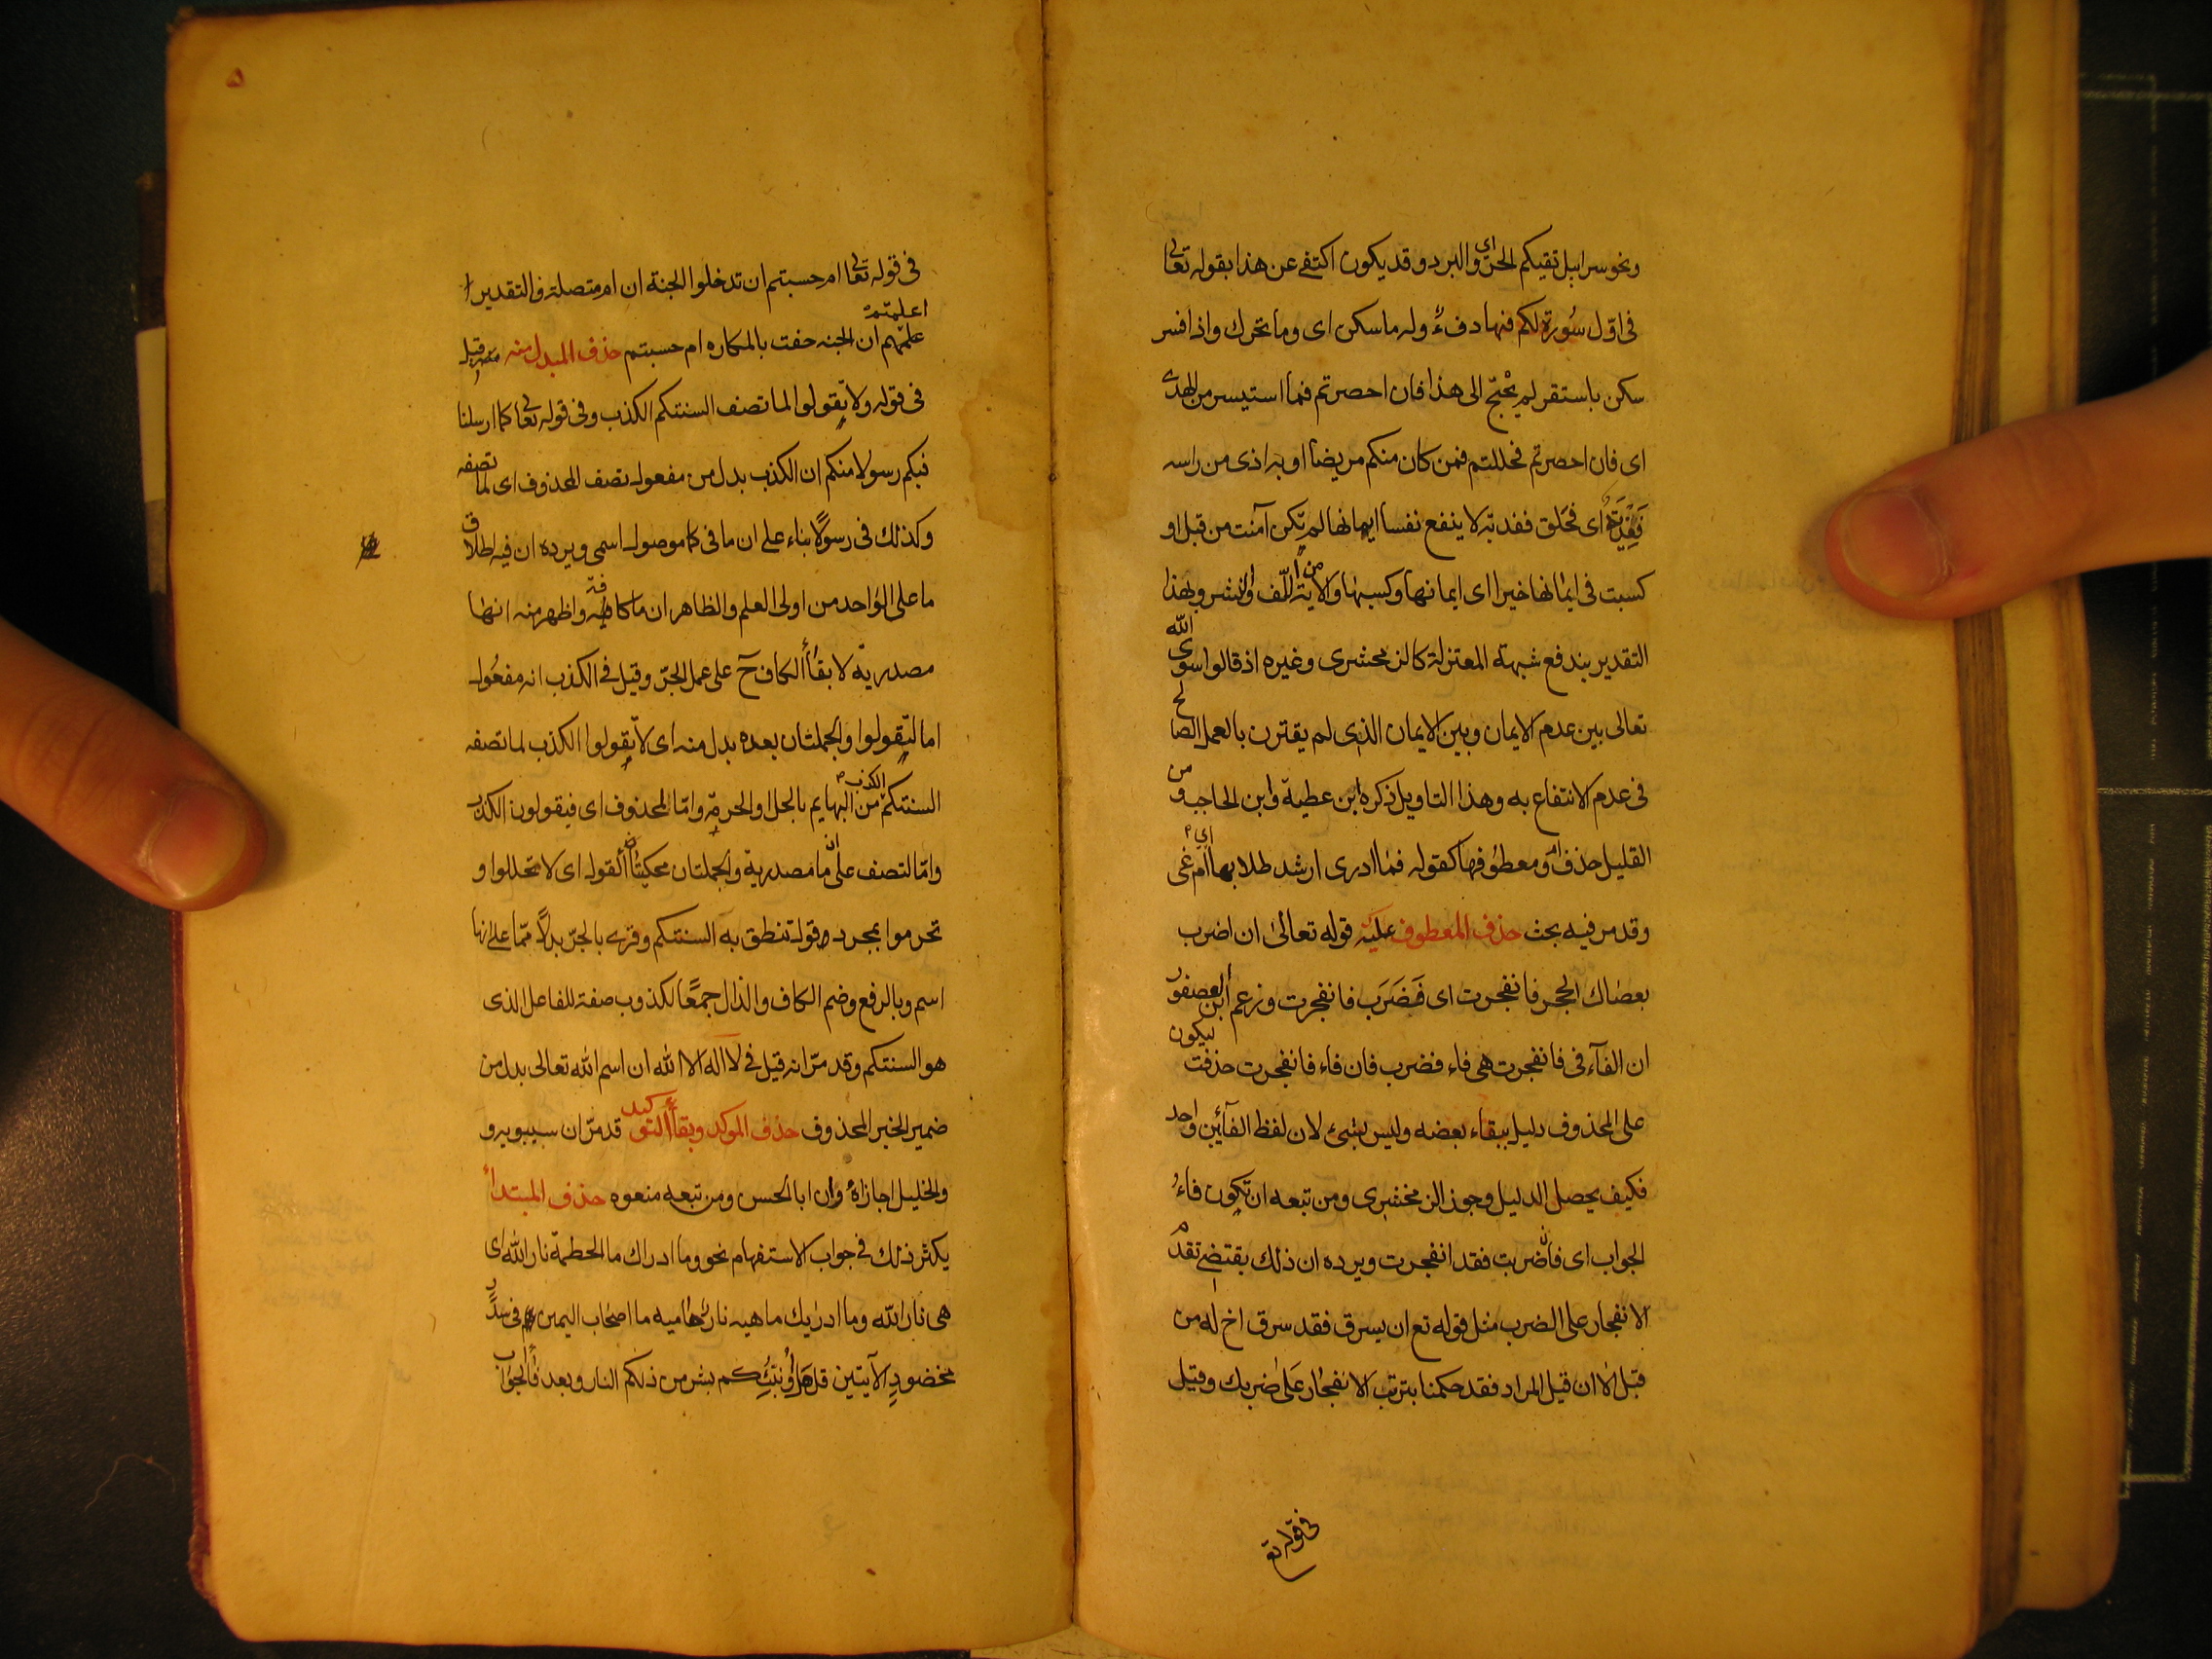 ونحو سرابيل تقيكم الحر اى والبرد وقد يكون اكتفى عن هذا بقوله تعالى
فى اول سُورة لكم فيها دفءٌ وله ما سكن اى وما تحرك واذا فسر
سكن باستقر لم يحْتج الى هذا فان احصرتم فما استيسر من الهدى
اى فان احصرتم فحللتم فمن كان منكم مريضا او به اذى من راسه
فَفِدْيَةٌ اى فحَلق ففدية لا ينفع نفسا ايمانها لم تكن آمنت من قبل او
كسبت فى ايمانها خيرا اى ايمانها وكسبها والاية من اللّف والنشر وبهذا
التقدير يندفع شبهة المعتزلة كالزمخشرى وغيره اذ قالوا سوى الله
تعالى بين عدم الايمان وبين الايمان الذى لم يقترن بالعمل الصالح
فى عدم الانتفاع به وهذا التاويل ذكره ابن عطية وابن الحاجب ومن
القليل حذف ام ومعطوفها كقوله فما ادرى ارشد طلابها اى ام غى
وقد مر فيه بحث حذف المعطوف عليه قوله تعالىٰ ان اضرب
بعصاك الحجر فانفجرت اى فَضَرَب فانفجرت وزعم ابن العصفور
ان الفآء فى فانفجرت هى فاء فضرب فان فاء فانفجرت حذفت ليكون
على المحذوف دليل ببقاء بعضه وليس بشئ لان لفظ الفآئين واحد
فكيف يحصل الدليل وجوز الزمخشرى ومن تبعه ان تكون فاءُ
الجواب اى فان ضربت فقد انفجرت ويرده ان ذلك يقتضى تقدم
الانفجار على الضرب مثل قوله تع ان يسرق فقد سرق اخ له من
قبل الا ان قيل المراد فقد حكمنا بترتب الانفجار عَلى ضربك وقيل
فى قوله تع
۵
فى قوله تعالى ام حسبتم ان تدخلوا الجنة ان ام متصلة والتقدير
اعلمتم
علمتم ان الجنه حفت بالمكاره ام حسبتم حذف المبدل منه قيل
فى قوله ولا تقولوا لما تصف السنتكم الكذب وفى قوله تعالى كما ارسلنا
فيكم رسولا منكم ان الكذب بدل من مفعول تصف المحذوف اى لما تصفه
وكذلك فى رسولًا بناء على ان ما فى كما موصول اسمى ويرده ان فيه اطلاق
ما على الواحد من اولى العلم والظاهر ان ما كافّة واظهر منه انها
مصدريّة لابقاء الكاف ح على عمل الجرّ وقيل فى الكذب انه مفعُول
اما لتقولوا والجملتان بعده بدل منه اى لا تقولوا الكذب لما تصفه
السنتكم الكذب من البهايم بالحل او الحرمة واما لمحذوف اى فيقولون الكذب
واما لتصف على ان ما مصدرية والجملتان محكيتان القول اى لا تحللوا و
تحرموا بمجرد قول تنطق به السنتكم وقرئ بالجرّ بدلًا من ما على انها
اسم وبالرفع وضم الكاف والذال جمعًا لكذوب صفة للفاعل الذى
هو السنتكم وقد مرّ انه قيل فى لا اله الا الله ان اسم الله تعالى بدل من
ضمير الخبر المحذوف حذف الموكد وبقاء التوكيد قد مرّ ان سيبويه و
والخليل اجازاهُ وان ابا الحسن ومن تبعه منعوه حذف المبتدأ
يكثر ذلك فى جواب الاستفهام نحو وما ادراك ما الحطمة نار الله اى
هى نار الله وما ادريك ما هيه نار حامية ما اصحاب اليمين فى سدر
مخضودٍ الآيتين قل هَل اُونبّئُكم بشر من ذلكم النار وبعد فآ الجواب